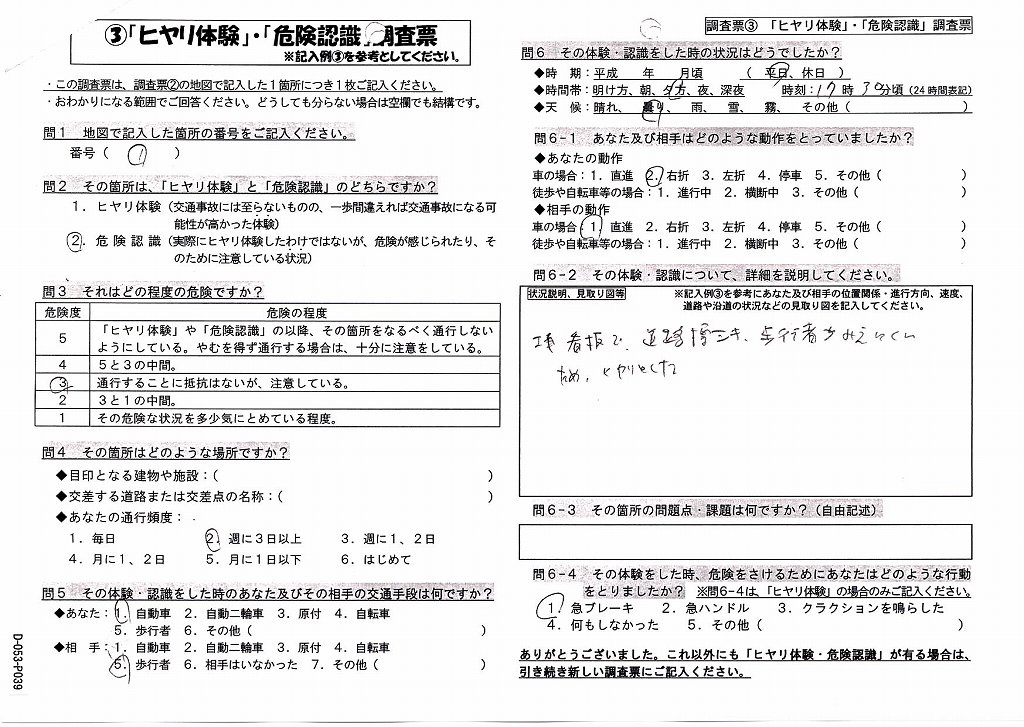 ③「ヒヤリ体験」・「危険認識」調査票
※記入例③を参考としてください。
・この調査票は、調査票②の地図で記入した1箇所につき1枚ご記入ください。
・おわかりになる範囲でご回答ください。どうしても分らない場合は空欄でも結構です。
問1 地図で記入した箇所の番号をご記入ください。
番号( 1 )
問2 その箇所は、「ヒヤリ体験」と「危険認識」のどちらですか?
1.ヒヤリ体験(交通事故には至らないものの、一歩間違えれば交通事故になる可
能性が高かった体験)
2.危険認識(実際にヒヤリ体験したわけではないが、危険が感じられたり、そ
のために注意している状況)
問3 それはどの程度の危険ですか?
危険度 危険の程度
5 「ヒヤリ体験」や「危険認識」の以降、その箇所をなるべく通行しない
ようにしている。やむを得ず通行する場合は、十分に注意をしている。
4 5と3の中間。
3 通行することに抵抗はないが、注意している。
2 3と1の中間。
1 その危険な状況を多少気にとめている程度。
問4 その箇所はどのような場所ですか?
◆目印となる建物や施設:( )
◆交差する道路または交差点の名称:( )
◆あなたの通行頻度:
1.毎日 2.週に3日以上 3.週に1、2日
4.月に1、2日 5.月に1日以下 6.はじめて
問5 その体験・認識をした時のあなた及びその相手の交通手段は何ですか?
◆あなた:1.自動車 2.自動二輪車 3.原付 4.自転車
5.歩行者 6.その他( )
◆相 手:1.自動車 2.自動二輪車 3.原付 4.自転車
5.歩行者 6.相手はいなかった 7.その他( )
D-053-P039
調査票③ 「ヒヤリ体験」・「危険認識」調査票
問6 その体験・認識をした時の状況はどうでしたか?
◆時 期:平成 年 月頃 ( 平日、休日 )
◆時間帯:明け方、朝、夕方、夜、深夜 時刻:17時30分頃(24時間表記)
◆天 候:晴れ、曇り、雨、雪、霧、その他( )
問6-1 あなた及び相手はどのような動作をとっていましたか?
◆あなたの動作
車の場合:1.直進 2.右折 3.左折 4.停車 5.その他( )
徒歩や自転車等の場合:1.進行中 2.横断中 3.その他( )
◆相手の動作
車の場合:1.直進 2.右折 3.左折 4.停車 5.その他( )
徒歩や自転車等の場合:1.進行中 2.横断中 3.その他( )
問6-2 その体験・認識について、詳細を説明してください。
状況説明、見取り図等 ※記入例③を参考にあなた及び相手の位置関係・進行方向、速度、
道路や沿道の状況などの見取り図を記入してください。
看板で、道路 歩行者がみえにくい
ため、ヒヤリとした
問6-3 その箇所の問題点・課題は何ですか?(自由記述)
問6-4 その体験をした時、危険をさけるためにあなたはどのような行動
をとりましたか? ※問6-4は、「ヒヤリ体験」の場合のみご記入ください。
1.急ブレーキ 2.急ハンドル 3.クラクションを鳴らした
4.何もしなかった 5.その他( )
ありがとうございました。これ以外にも「ヒヤリ体験・危険認識」が有る場合は、
引き続き新しい調査票にご記入ください。